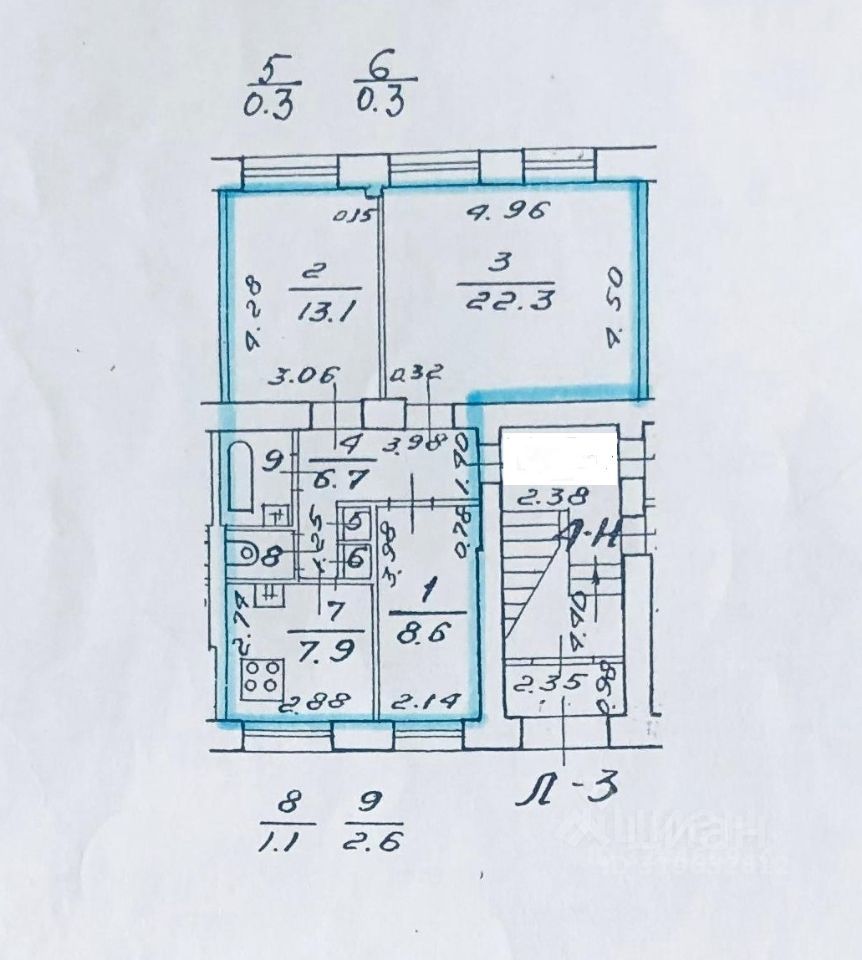 5 6
0.3 0.3
0.15 4.96
2 3
13.1 22.3
4.28 4.50
3.06 0.32
4 3.98 1.90
9 6.7
2.38
5 1.25 0.78
Л-Н
8 6 3.98
1
7 8.6
2.74 7.9 4.40
2.35 0.98
2.88 2.14
Л-3
8 9
1.1 2.6
циан